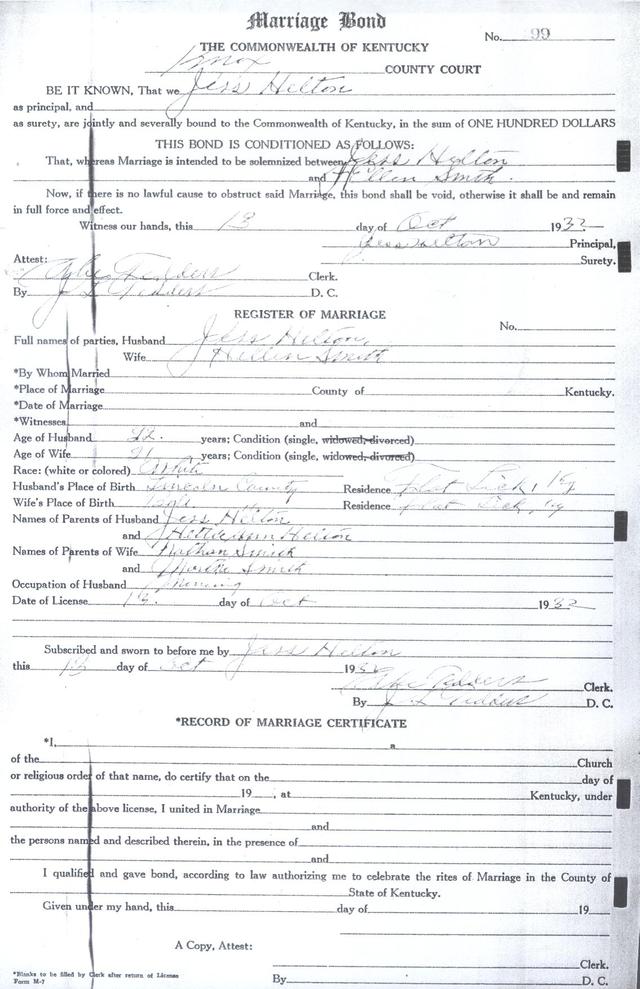 Marriage Bond
No. 99
THE COMMONWEALTH OF KENTUCKY
Knox COUNTY COURT
BE IT KNOWN, That we Jess Hilton
as principal, and
as surety, are jointly and severally bound to the Commonwealth of Kentucky, in the sum of ONE HUNDRED DOLLARS
THIS BOND IS CONDITIONED AS FOLLOWS:
That, whereas Marriage is intended to be solemnized between Jess Hylton
and Hellen Smith.
Now, if there is no lawful cause to obstruct said Marriage, this bond shall be void, otherwise it shall be and remain
in full force and effect.
Witness our hands, this 13 day of Oct 1932
Jess Hilton Principal,
Surety.
Attest:
Clerk.
By D. C.
REGISTER OF MARRIAGE
No.
Full names of parties, Husband Jess Hilton,
Wife Hellen Smith
*By Whom Married
*Place of Marriage County of Kentucky.
*Date of Marriage
*Witnesses and
Age of Husband 22. years; Condition (single, widowed, divorced)
Age of Wife 21 years; Condition (single, widowed, divorced)
Race: (white or colored) White
Husband's Place of Birth Lincoln County Residence Flat Lick, Ky
Wife's Place of Birth Residence Flat Lick, Ky
Names of Parents of Husband Jess Hilton
and Hilton
Names of Parents of Wife Nathan Smith
and Smith
Occupation of Husband Mining
Date of License 13. day of Oct 1932
Subscribed and sworn to before me by Jess Hilton
this 13 day of Oct 1932
Clerk.
By D. C.
*RECORD OF MARRIAGE CERTIFICATE
*I, a
of the Church
or religious order of that name, do certify that on the day of
19 , at Kentucky, under
authority of the above license, I united in Marriage
and
the persons named and described therein, in the presence of
and
I qualified and gave bond, according to law authorizing me to celebrate the rites of Marriage in the County of
State of Kentucky.
Given under my hand, this day of 19
A Copy, Attest:
Clerk.
*Blanks to be filled by Clerk after return of License
Form M-7
By D. C.